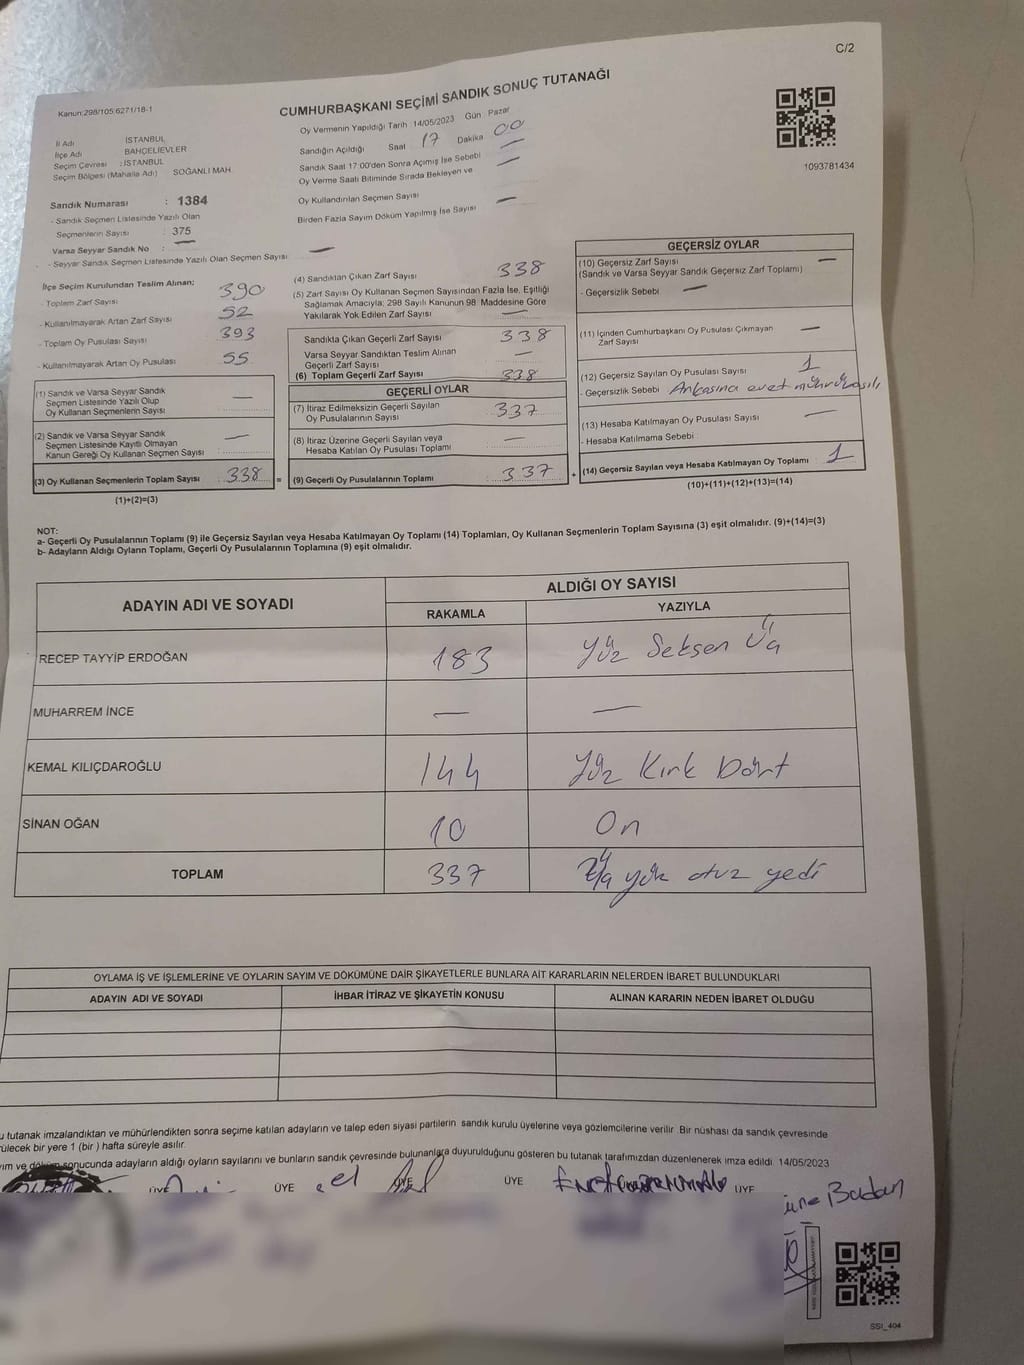 C/2
Kanun:298/105;6271/18-1
CUMHURBAŞKANI SEÇİMİ SANDIK SONUÇ TUTANAĞI
1093781434
İl Adı İSTANBUL
İlçe Adı BAHÇELİEVLER
Seçim Çevresi : İSTANBUL
Seçim Bölgesi (Mahalle Adı) SOĞANLI MAH.
Sandık Numarası : 1384
- Sandık Seçmen Listesinde Yazılı Olan
Seçmenlerin Sayısı : 375
Varsa Seyyar Sandık No : —
- Seyyar Sandık Seçmen Listesinde Yazılı Olan Seçmen Sayısı: —
Oy Vermenin Yapıldığı Tarih : 14/05/2023 Gün : Pazar
Sandığın Açıldığı Saat 17 Dakika 00
Sandık Saat 17:00'den Sonra Açımış İse Sebebi —
Oy Verme Saati Bitiminde Sırada Bekleyen ve —
Oy Kullandırılan Seçmen Sayısı
Birden Fazla Sayım Döküm Yapılmış İse Sayısı —
İlçe Seçim Kurulundan Teslim Alınan;
- Toplam Zarf Sayısı 390
- Kullanılmayarak Artan Zarf Sayısı 52
- Toplam Oy Pusulası Sayısı 393
- Kullanılmayarak Artan Oy Pusulası 55
(1) Sandık ve Varsa Seyyar Sandık
Seçmen Listesinde Yazılı Olup —
Oy Kullanan Seçmenlerin Sayısı
(2) Sandık ve Varsa Seyyar Sandık
Seçmen Listesinde Kayıtlı Olmayan —
Kanun Gereği Oy Kullanan Seçmen Sayısı
(3) Oy Kullanan Seçmenlerin Toplam Sayısı 338 =
(1)+(2)=(3)
(4) Sandıktan Çıkan Zarf Sayısı 338
(5) Zarf Sayısı Oy Kullanan Seçmen Sayısından Fazla İse, Eşitliği
Sağlamak Amacıyla; 298 Sayılı Kanunun 98. Maddesine Göre
Yakılarak Yok Edilen Zarf Sayısı —
Sandıkta Çıkan Geçerli Zarf Sayısı 338
Varsa Seyyar Sandıktan Teslim Alınan
Geçerli Zarf Sayısı —
(6) Toplam Geçerli Zarf Sayısı 338
GEÇERLİ OYLAR
(7) İtiraz Edilmeksizin Geçerli Sayılan
Oy Pusulalarının Sayısı 337
(8) İtiraz Üzerine Geçerli Sayılan veya
Hesaba Katılan Oy Pusulası Toplamı —
(9) Geçerli Oy Pusulalarının Toplamı 337 +
GEÇERSİZ OYLAR
(10) Geçersiz Zarf Sayısı —
(Sandık ve Varsa Seyyar Sandık Geçersiz Zarf Toplamı)
- Geçersizlik Sebebi —
(11) İçinden Cumhurbaşkanı Oy Pusulası Çıkmayan
Zarf Sayısı —
(12) Geçersiz Sayılan Oy Pusulası Sayısı 1
- Geçersizlik Sebebi Arkasına evet mührü basılı
(13) Hesaba Katılmayan Oy Pusulası Sayısı —
- Hesaba Katılmama Sebebi
(14) Geçersiz Sayılan veya Hesaba Katılmayan Oy Toplamı 1
(10)+(11)+(12)+(13)=(14)
NOT:
a- Geçerli Oy Pusulalarının Toplamı (9) ile Geçersiz Sayılan veya Hesaba Katılmayan Oy Toplamı (14) Toplamları, Oy Kullanan Seçmenlerin Toplam Sayısına (3) eşit olmalıdır. (9)+(14)=(3)
b- Adayların Aldığı Oyların Toplamı, Geçerli Oy Pusulalarının Toplamına (9) eşit olmalıdır.
ADAYIN ADI VE SOYADI
ALDIĞI OY SAYISI
RAKAMLA YAZIYLA
RECEP TAYYİP ERDOĞAN 183 Yüz Seksen Üç
MUHARREM İNCE — —
KEMAL KILIÇDAROĞLU 144 Yüz Kırk Dört
SİNAN OĞAN 10 On
TOPLAM 337 Üç yüz otuz yedi
OYLAMA İŞ VE İŞLEMLERİNE VE OYLARIN SAYIM VE DÖKÜMÜNE DAİR ŞİKAYETLERLE BUNLARA AİT KARARLARIN NELERDEN İBARET BULUNDUKLARI
ADAYIN ADI VE SOYADI İHBAR İTİRAZ VE ŞİKAYETİN KONUSU ALINAN KARARIN NEDEN İBARET OLDUĞU
u tutanak imzalandıktan ve mühürlendikten sonra seçime katılan adayların ve talep eden siyasi partilerin sandık kurulu üyelerine veya gözlemcilerine verilir. Bir nüshası da sandık çevresinde
rülecek bir yere 1 (bir) hafta süreyle asılır.
yım ve döküm sonucunda adayların aldığı oyların sayılarını ve bunların sandık çevresinde bulunanlara duyurulduğunu gösteren bu tutanak tarafımızdan düzenlenerek imza edildi. 14/05/2023
ÜYE ÜYE ÜYE ÜYE ÜYE
SSI_404